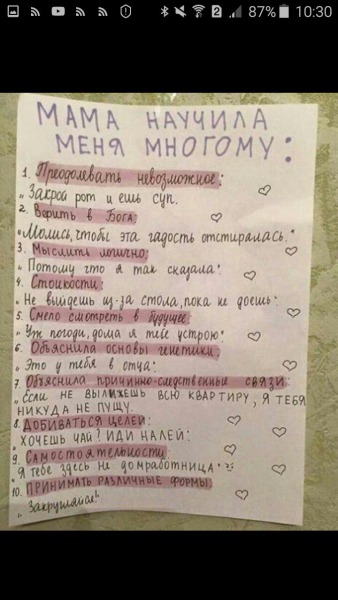 2 87% 10:30
МАМА НАУЧИЛА
МЕНЯ МНОГОМУ:
1. Преодолевать невозможное:
„Закрой рот и ешь суп.
2. Верить в Бога:
„Молись, чтобы эта гадость отстиралась."
3. Мыслить логично:
„Потому что я так сказала".
4. Стойкости:
„Не выйдешь из-за стола, пока не доешь".
5. Смело смотреть в будущее:
„Уж погоди, дома я тебе устрою".
6. Объяснила основы генетики:
„Это у тебя в отца".
7. Объяснила причинно-следственные связи:
„Если не вылижешь всю квартиру, я тебя
никуда не пущу.
8. ДОБИВАТЬСЯ ЦЕЛЕЙ:
„ХОЧЕШЬ ЧАЙ? ИДИ НАЛЕЙ".
9. Самостоятельности:
„Я тебе здесь не домработница".
10. ПРИНИМАТЬ РАЗЛИЧНЫЕ ФОРМЫ
„Закругляйся!"